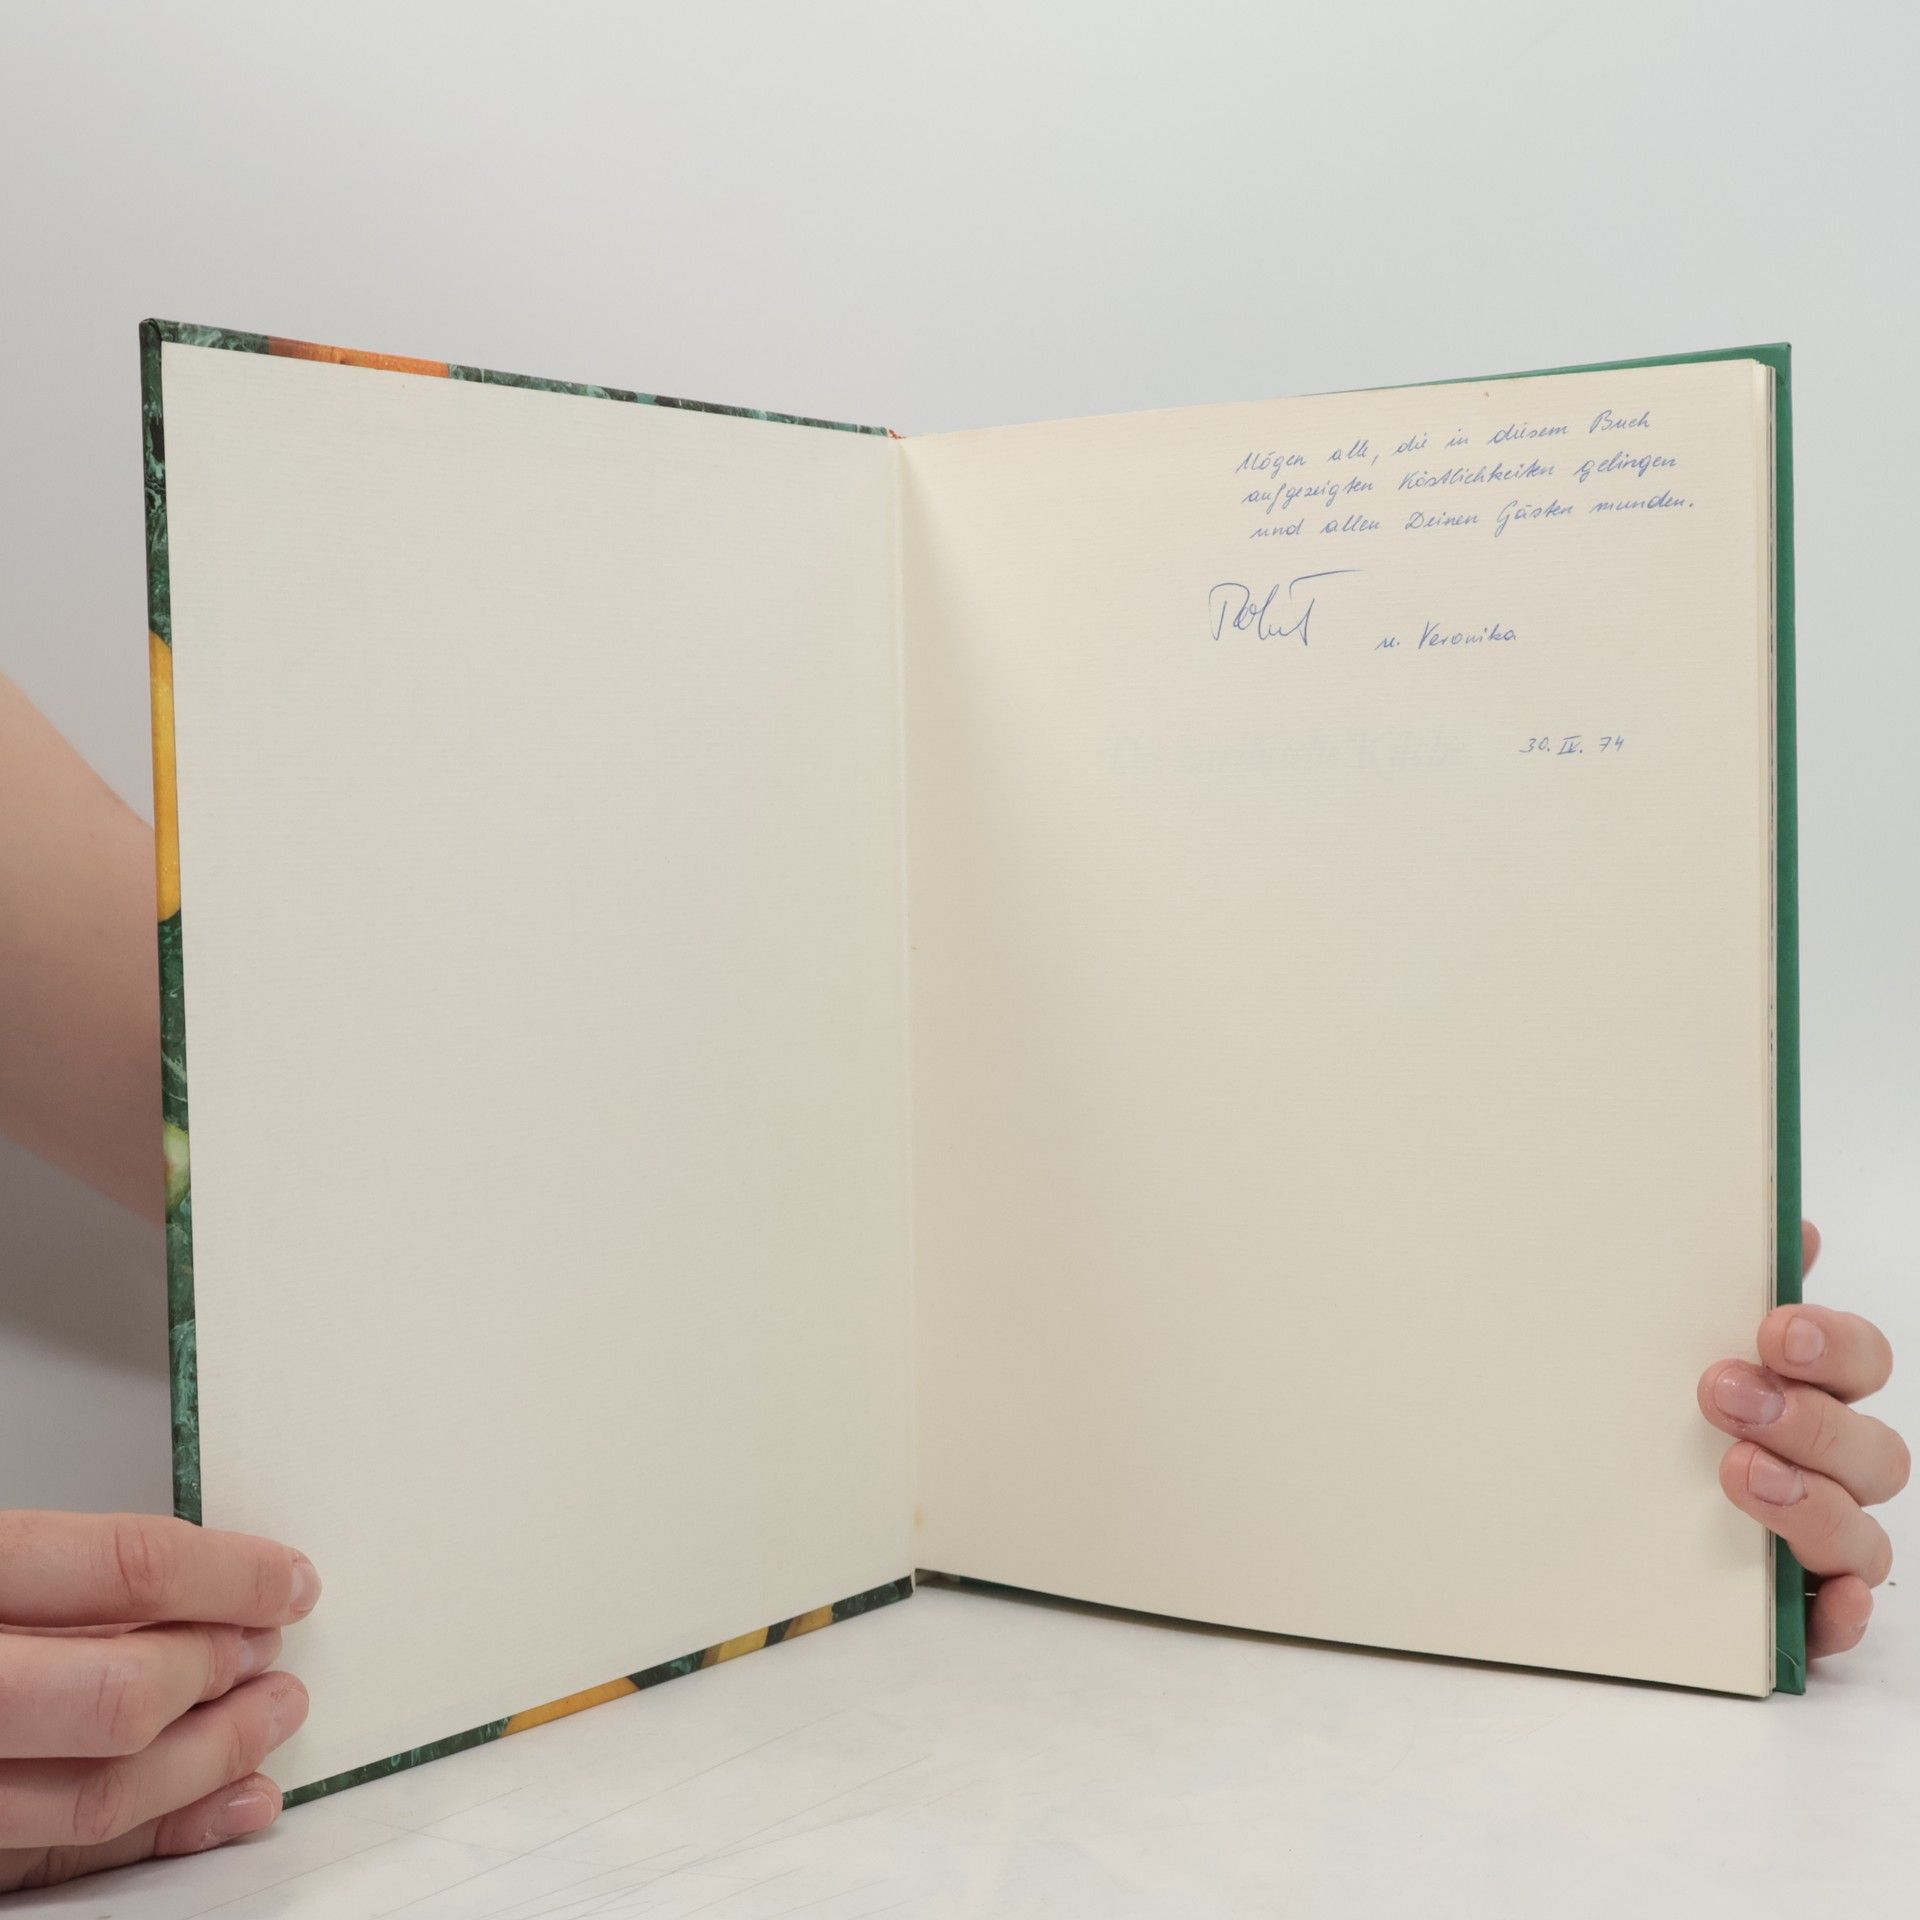 Mögen alle, die in diesem Buch
aufgezeigten Köstlichkeiten gelingen
und allen Deinen Gästen munden.
Robert
u. Veronika
30. IV. 74